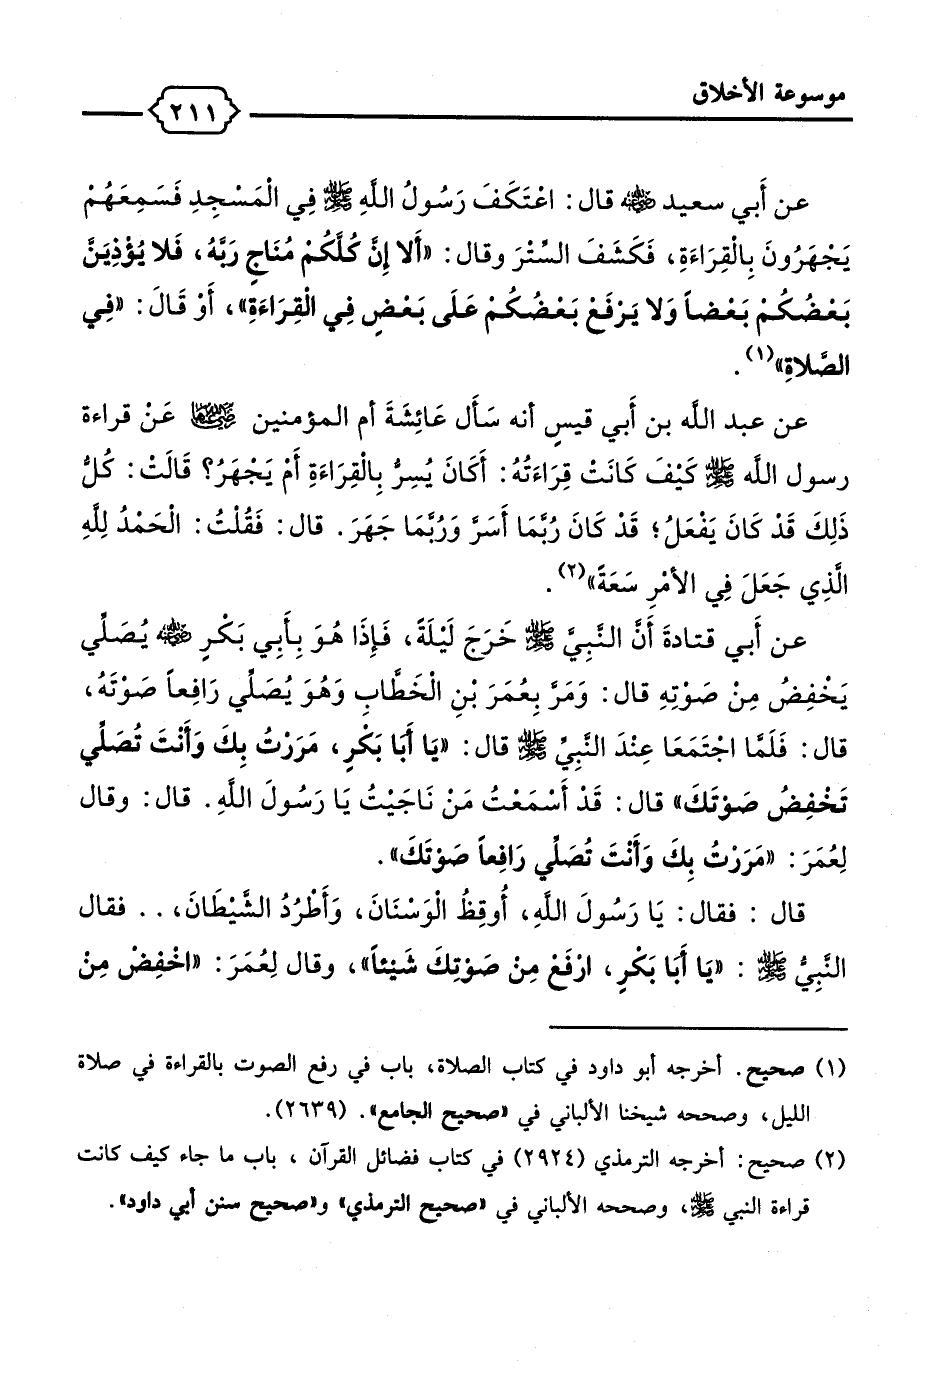 موسوعة الأخلاق
٢١١
عن أَبي سعيد ﵁ قال: اعْتَكَفَ رَسُولُ اللَّهِ ﷺ فِي الْمَسْجِدِ فَسَمِعَهُمْ
يَجْهَرُونَ بِالْقِرَاءَةِ، فَكَشَفَ السِّتْرَ وقال: «أَلا إِنَّ كُلَّكُمْ مُنَاجٍ رَبَّهُ، فَلا يُؤْذِيَنَّ
بَعْضُكُمْ بَعْضاً وَلا يَرْفَعْ بَعْضُكُمْ عَلَى بَعْضٍ فِي الْقِرَاءَةِ»، أَوْ قَالَ: «فِي
الصَّلاةِ»(١).
عن عبد اللَّه بن أَبي قيسٍ أنه سَأَل عَائِشَةَ أم المؤمنين ﵂ عَنْ قراءة
رسول اللَّه ﷺ كَيْفَ كَانَتْ قِرَاءَتُهُ: أَكَانَ يُسِرُّ بِالْقِرَاءَةِ أَمْ يَجْهَرُ؟ قَالَتْ: كُلُّ
ذَلِكَ قَدْ كَانَ يَفْعَلُ؛ قَدْ كَانَ رُبَّمَا أَسَرَّ وَرُبَّمَا جَهَرَ. قال: فَقُلْتُ: الْحَمْدُ لِلَّهِ
الَّذِي جَعَلَ فِي الأمْرِ سَعَةً»(٢).
عن أَبي قتادةَ أَنَّ النَّبِيَّ ﷺ خَرَجَ لَيْلَةً، فَإِذَا هُوَ بِأَبِي بَكْرٍ ﵁ يُصَلِّي
يَخْفِضُ مِنْ صَوْتِهِ قال: وَمَرَّ بِعُمَرَ بْنِ الْخَطَّابِ وَهُوَ يُصَلِّي رَافِعاً صَوْتَهُ،
قال: فَلَمَّا اجْتَمَعَا عِنْدَ النَّبِيِّ ﷺ قال: «يَا أَبَا بَكْرٍ، مَرَرْتُ بِكَ وَأَنْتَ تُصَلِّي
تَخْفِضُ صَوْتَكَ» قال: قَدْ أَسْمَعْتُ مَنْ نَاجَيْتُ يَا رَسُولَ اللَّهِ. قال: وقال
لِعُمَرَ: «مَرَرْتُ بِكَ وَأَنْتَ تُصَلِّي رَافِعاً صَوْتَكَ».
قال : فقال: يَا رَسُولَ اللَّهِ، أُوقِظُ الْوَسْنَانَ، وَأَطْرُدُ الشَّيْطَانَ، .. فقال
النَّبِيُّ ﷺ : «يَا أَبَا بَكْرٍ، ارْفَعْ مِنْ صَوْتِكَ شَيْئاً»، وقال لِعُمَرَ: «اخْفِضْ مِنْ
(١) صحيح. أخرجه أبو داود في كتاب الصلاة، باب في رفع الصوت بالقراءة في صلاة
الليل، وصححه شيخنا الألباني في «صحيح الجامع». (٢٦٣٩).
(٢) صحيح: أخرجه الترمذي (٢٩٢٤) في كتاب فضائل القرآن ، باب ما جاء كيف كانت
قراءة النبي ﷺ، وصححه الألباني في «صحيح الترمذي» و«صحيح سنن أبي داود».